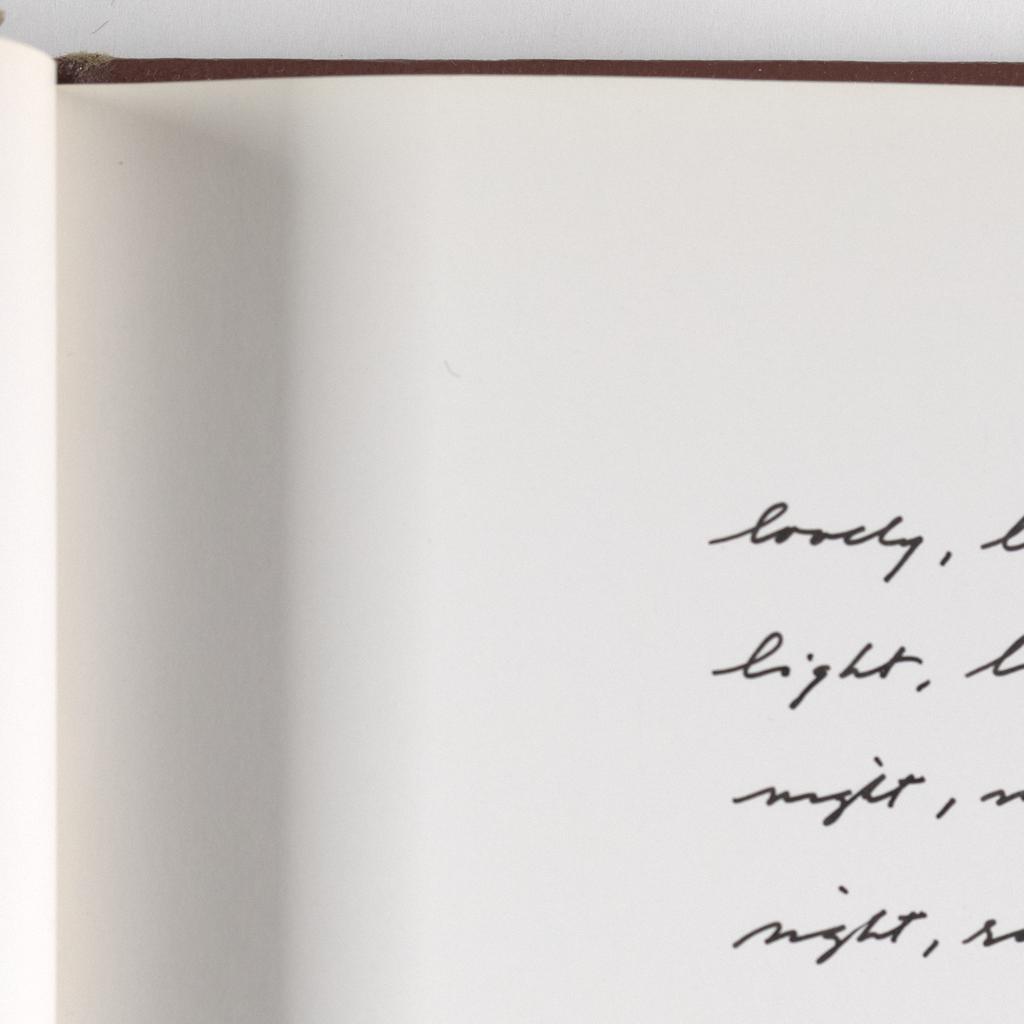 lovely, l
light, l
night, n
night, ro